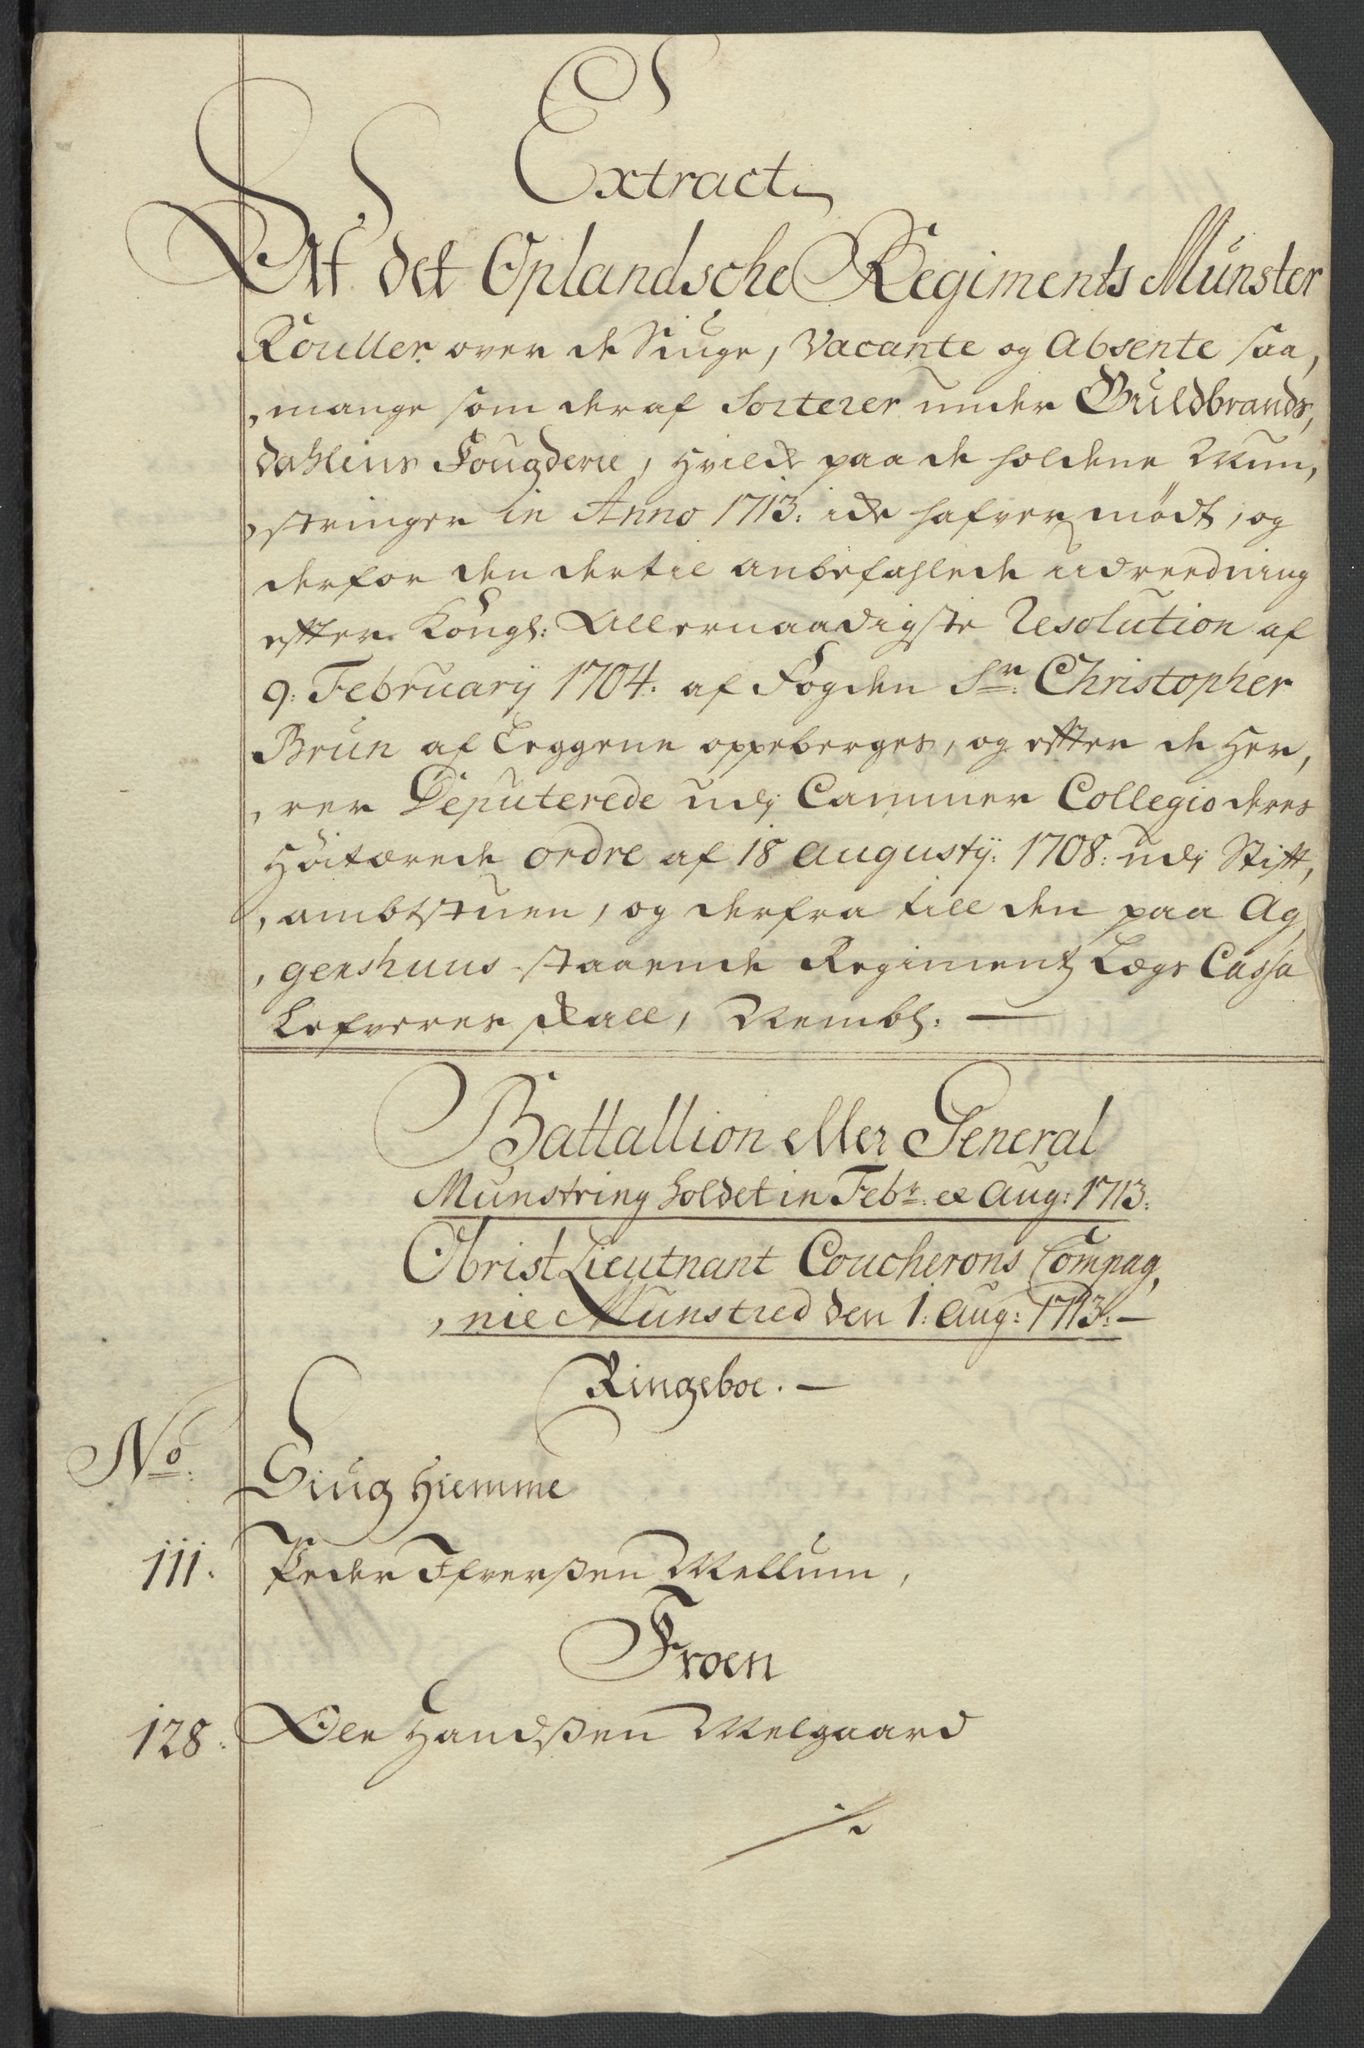 Extract
Aff det Oplandsche Regiments Munster
Rouller over de Siuge, Vacante og Absente saa,
,mange som deraf Sorterer under Guldbrands,
dahlens Fougderie, hvilche paa de holdene Mun,
,stringer in Anno 1713: iche hafver mødt, og
derfor den dertil anbefahlede udreedning
effter Kongl: Allernaadigste Resolution af
9: February 1704: af Fogden Sr: Christopher
Brun af Leggene oppeberges, og effter de Her,
,rer Deputerede udj Cammer Collegio deres
Høitærede ordre af 18 augustij: 1708: udj Stift,
,ambtstuen, og derfra till den paa Ag,
,gershuus staaende Regiments Lægs Cassa
Lefveres skall, Nembl: —
Battallion eller General
Munstring holdet in Febr: et Aug: 1713:
Obrist Lieutnant Coucherons Compag,
,nie Munstred den 1: Aug: 1713: —
Ringeboe. —
No: Siug Hiemme
111. Peder Ifverßen Mellum,
Froen
128. Ole Handßen Melgaard